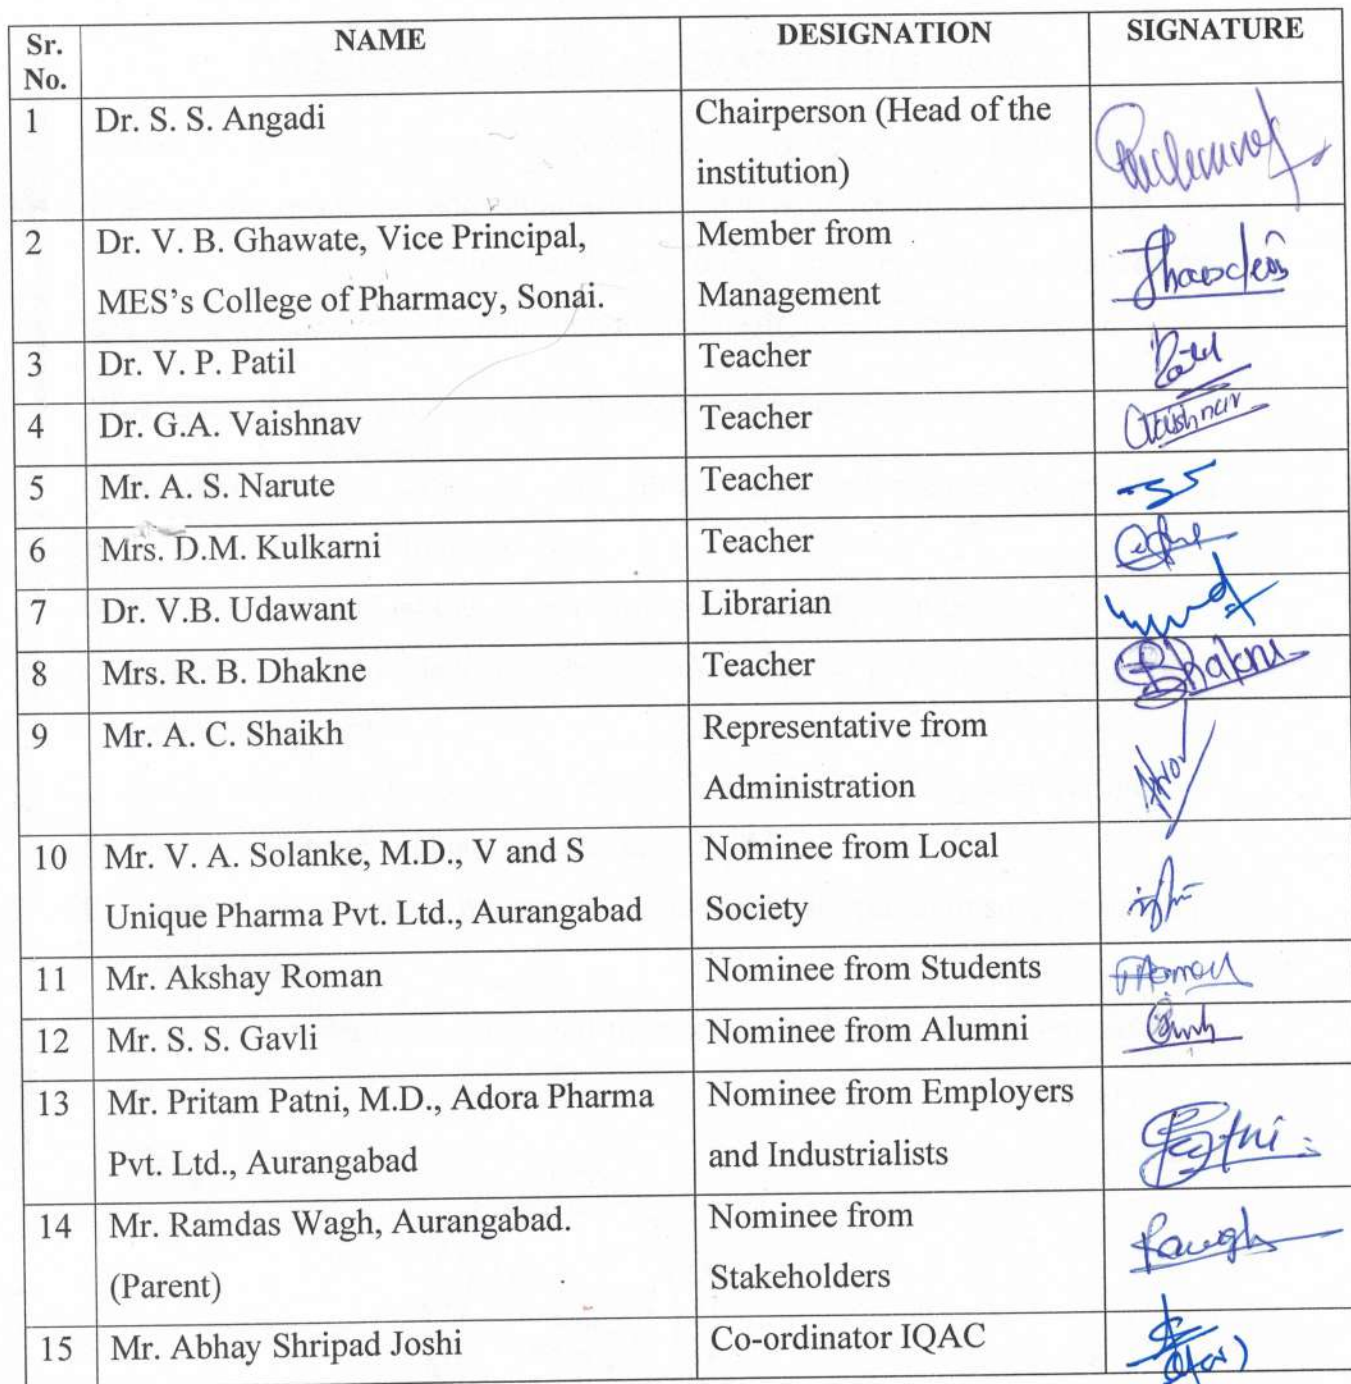 Sr. No. NAME DESIGNATION SIGNATURE
1 Dr. S. S. Angadi Chairperson (Head of the
institution)
2 Dr. V. B. Ghawate, Vice Principal, Member from
MES's College of Pharmacy, Sonai. Management
3 Dr. V. P. Patil Teacher Patil
4 Dr. G.A. Vaishnav Teacher Vaishnav
5 Mr. A. S. Narute Teacher
6 Mrs. D.M. Kulkarni Teacher
7 Dr. V.B. Udawant Librarian
8 Mrs. R. B. Dhakne Teacher
9 Mr. A. C. Shaikh Representative from
Administration
10 Mr. V. A. Solanke, M.D., V and S Nominee from Local
Unique Pharma Pvt. Ltd., Aurangabad Society
11 Mr. Akshay Roman Nominee from Students
12 Mr. S. S. Gavli Nominee from Alumni
13 Mr. Pritam Patni, M.D., Adora Pharma Nominee from Employers
Pvt. Ltd., Aurangabad and Industrialists
14 Mr. Ramdas Wagh, Aurangabad. Nominee from
(Parent) Stakeholders
15 Mr. Abhay Shripad Joshi Co-ordinator IQAC